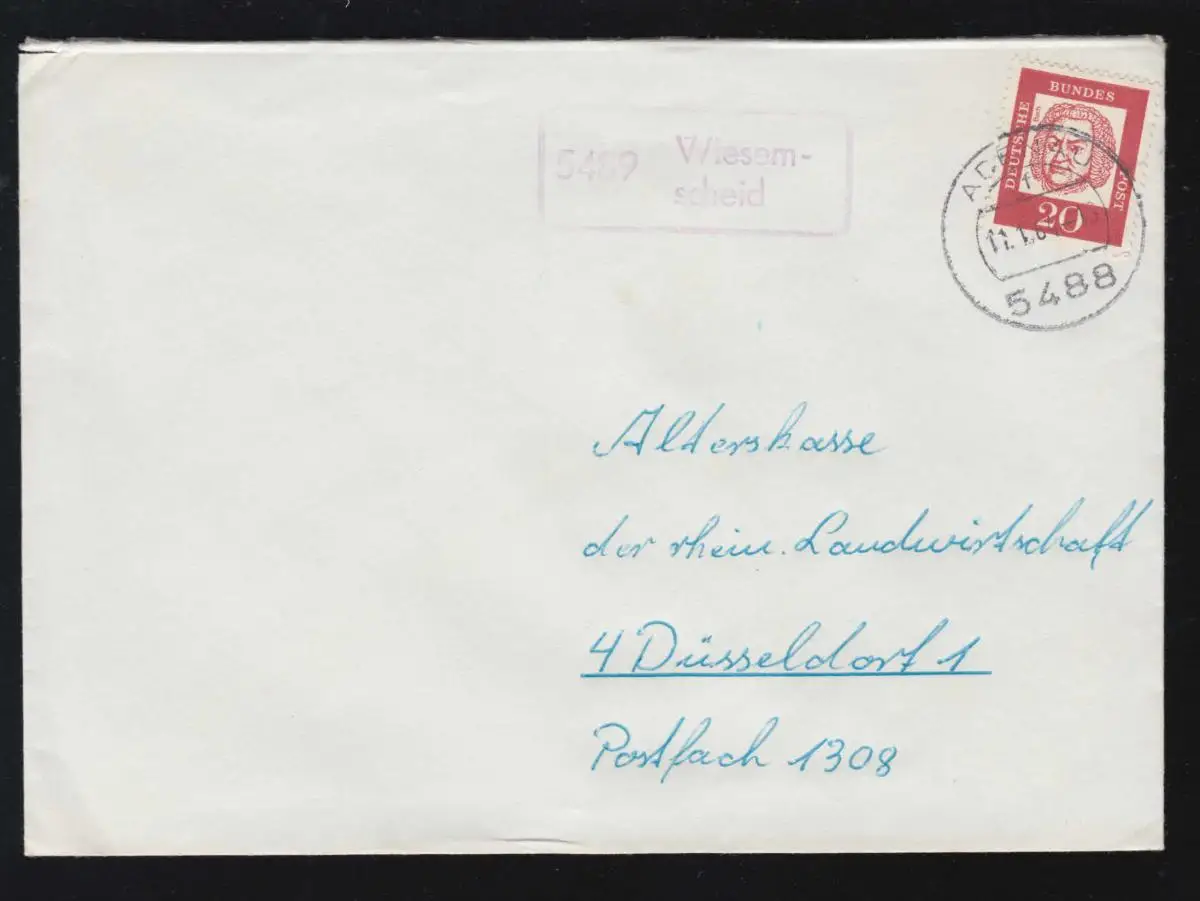 5489 Wiesem-
scheid
DEUTSCHE BUNDES POST
20
ADENAU
11.1.6
5488
Alterskasse
der rhein. Landwirtschaft
4 Düsseldorf 1
Postfach 1308